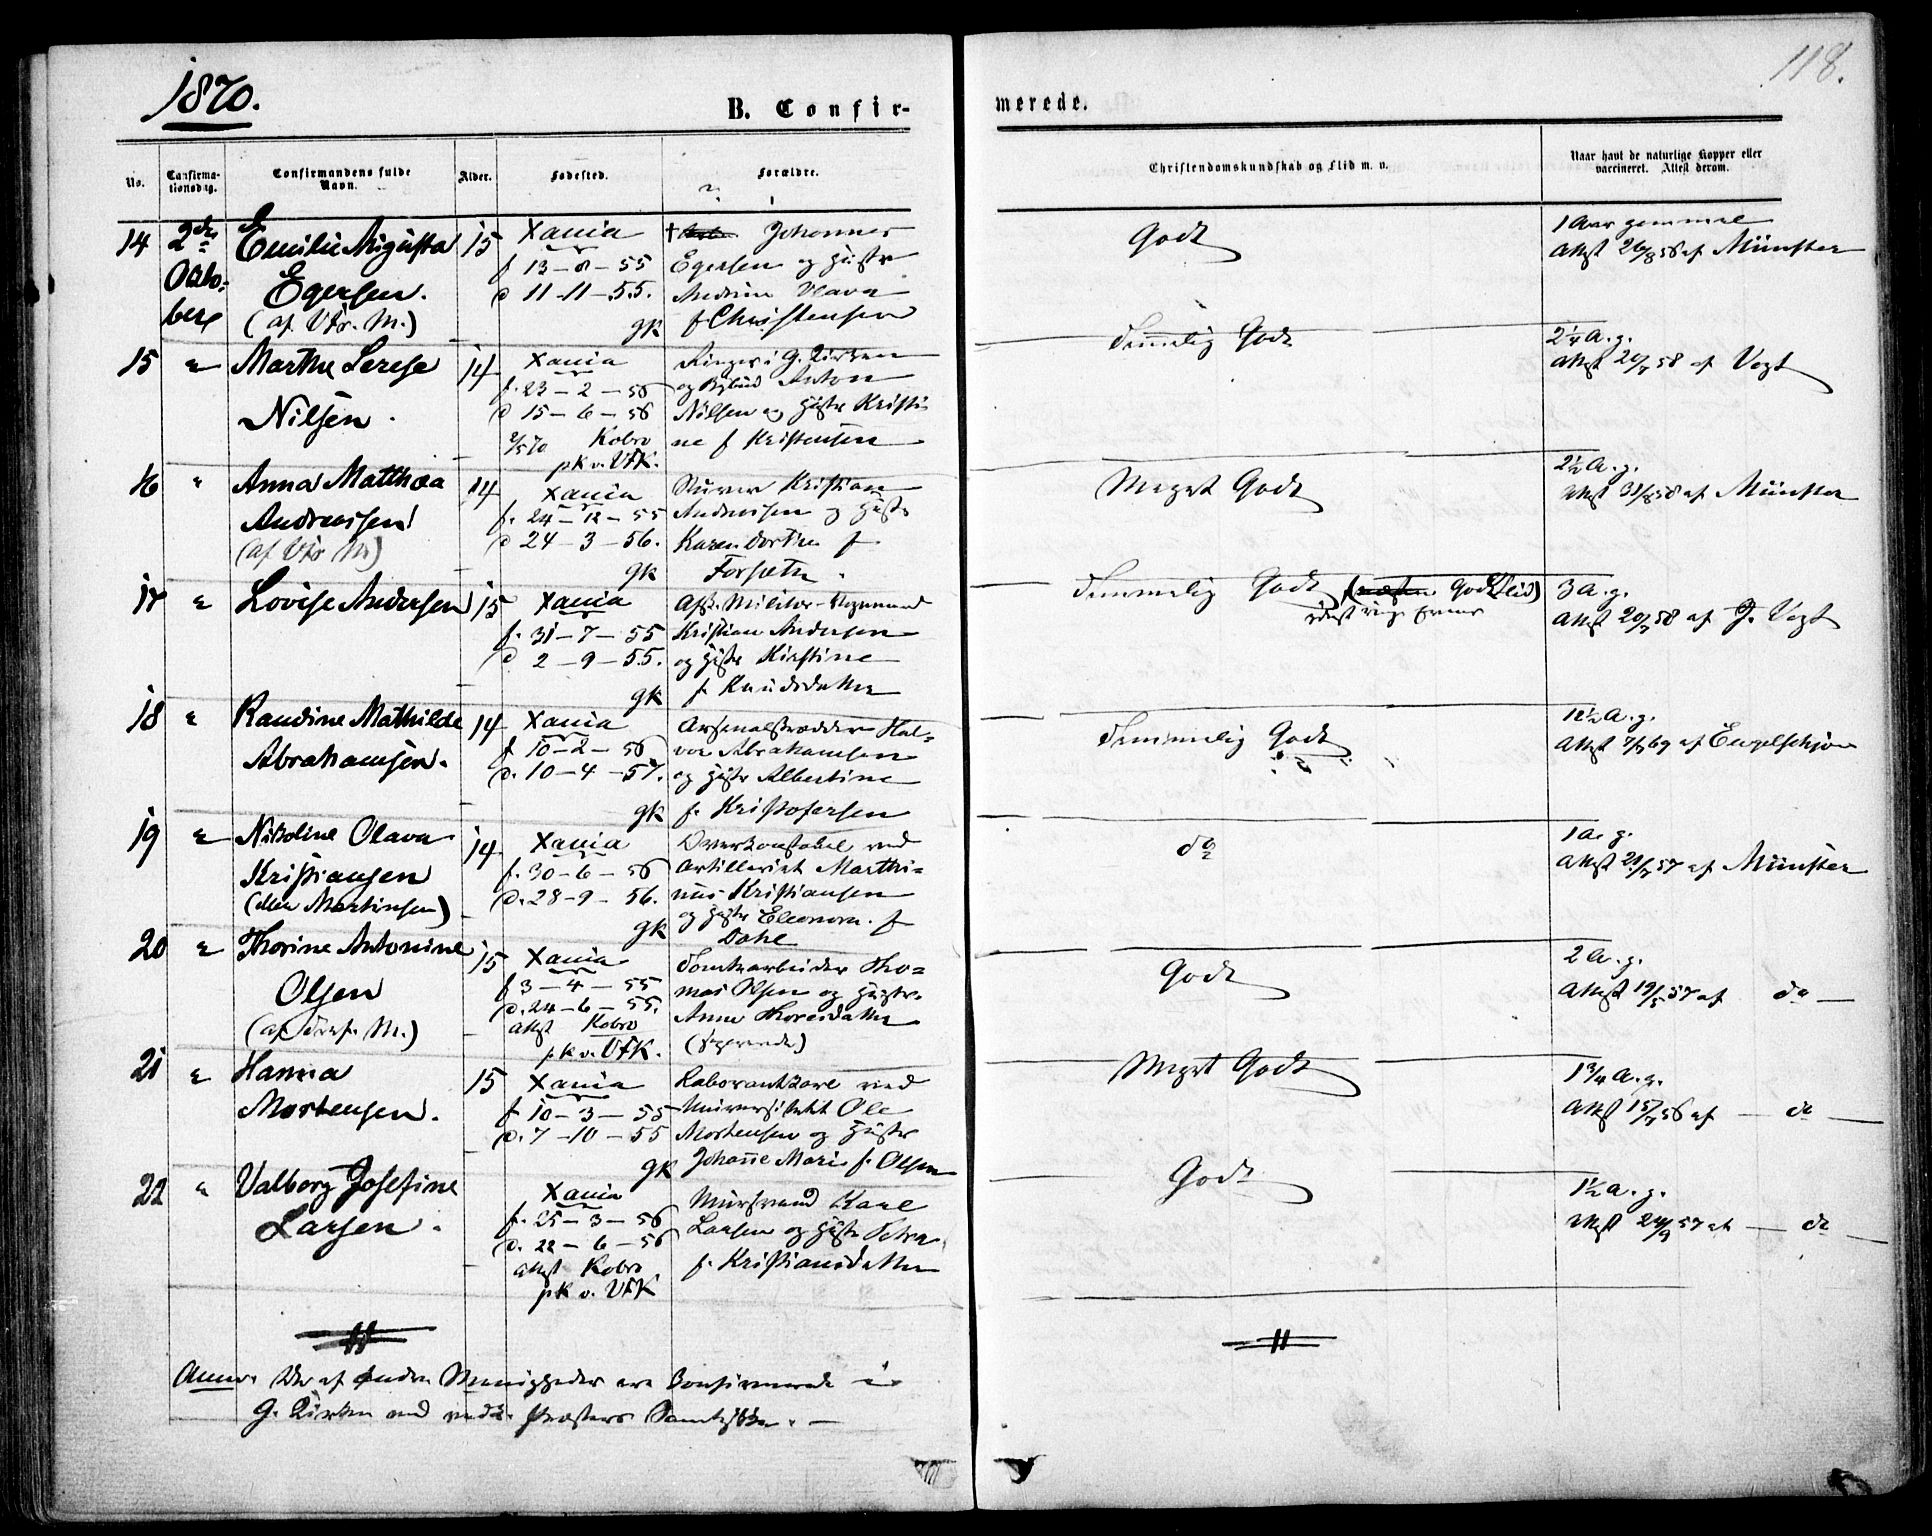 1870.
118.
B. Confir-
merede.
No.
Confirma-
tionsdag.
Confirmandens fulde
Navn.
Alder.
Fødested.
Forældre.
Christendomskundskab og Flid m. v.
Naar havt de naturlige Kopper eller
vaccineret. Attest derom.
14 2den Emilie Augusta 15 Xania † Johannes
Octo- Egersen. f 13-8-55 Egersen og Hustr
ber (af Vfr. M.) d 11-11-55. Andrine Olava
gk f Christensen
Godt
1 Aar gammel
Attest 26/8 56 af Münster
15 " Marthe Serese 14 Xania Ringer i G. Kirken
f. 23-2-56 og Anton
Nilsen. d 15-6-56 Nilsen og Hustr Kristi
Kobro ne f Kristensen
pk v. VFK.
Temmelig Godt
2 1/4 A. g.
Attest 20/7 58 af Vogt
16 " Anna Matthea 14 Xania Murer Kristian
Andreassen f. 24-12-55 Andreassen og Hustr
(af Vfr M) d 24-3-56. Karen Dorthea f
gk Forseth.
Meget Godt
2 1/2 A. g.
Attest 31/8 58 af Münster
17 " Lovise Andersen 15 Xania Afsk. Militær-Vognmand
f. 31-7-55 Kristian Andersen
d 2-9-55. og Hustr Kirstine
gk f. Knudsdatter
Temmelig Godt (næsten Godt Flid)
ringe Evner
3 A. g.
Attest 20/7 58 af J. Vogt
18 " Randine Mathilde 14 Xania Arsenalskrædder Hal-
Abrahamsen. f 10-2-56 vor Abrahamsen
d. 10-4-57. og Hustr Albertine
gk f. Kristofersen
Temmelig Godt
12 1/2 A. g.
Attest 7/9 69 af Engelschjøn
19 " Nikoline Olava 14 Xania Overkonstabel ved
Kristiansen f. 30-6-56 Artilleriet Marthi-
(eller Martinsen) d. 28-9-56. nus Kristiansen
gk og Hustr Eleonora. f
Dahl
do
1 A. g.
Attest 21/7 57 af Münster
20 " Thorine Antonine 15 Xania Tomtearbeider Tho-
Olsen f 3-4-55 mas Olsen og Hustr.
d. 24-6-55. Anne Thoresdatter
(af Tref. M.) Attest Kobro
pk v. VFK.
Godt
2 A. g.
Attest 19/5 57 af do
21 " Hanna 15 Xania Laborantkarl ved
Mortensen. f 10-3-55 Universitetet Ole
d. 7-10-55 Mortensen og Hustr
gk Johanne Marie f. Olsen
Meget Godt
1 3/4 A. g.
Attest 15/7 56 af do
22 " Valborg Josefine Xania Mursvend Karl
Larsen. f. 25-3-56 Larsen og Hustr Petra
d. 22-6-56 f. Kristiansdatter
Attest Kobro
pk v. VFK
Godt
1 1/2 A. g.
Attest 24/9 57 af do
Anm. De af andre Menigheder ere Confirmerede i
G. Kirken med vedk. Præsters Samtykke.